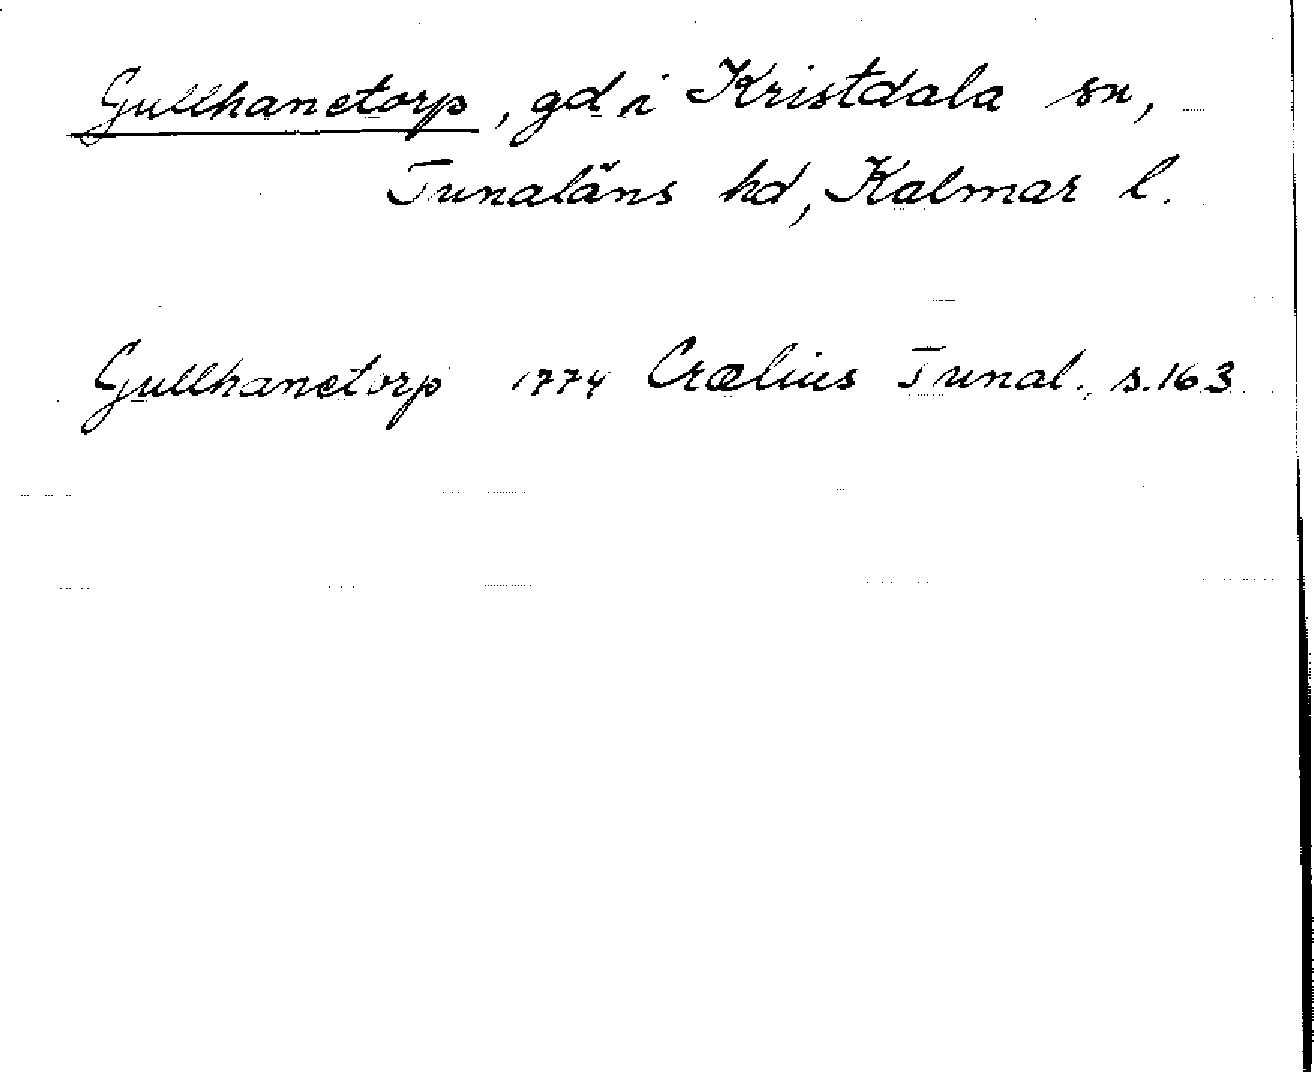 Gullhanetorp, gd i Kristdala sn,
Tunaläns hd, Kalmar l.
Gullhanetorp 1774 Crælius Tunal. s.163